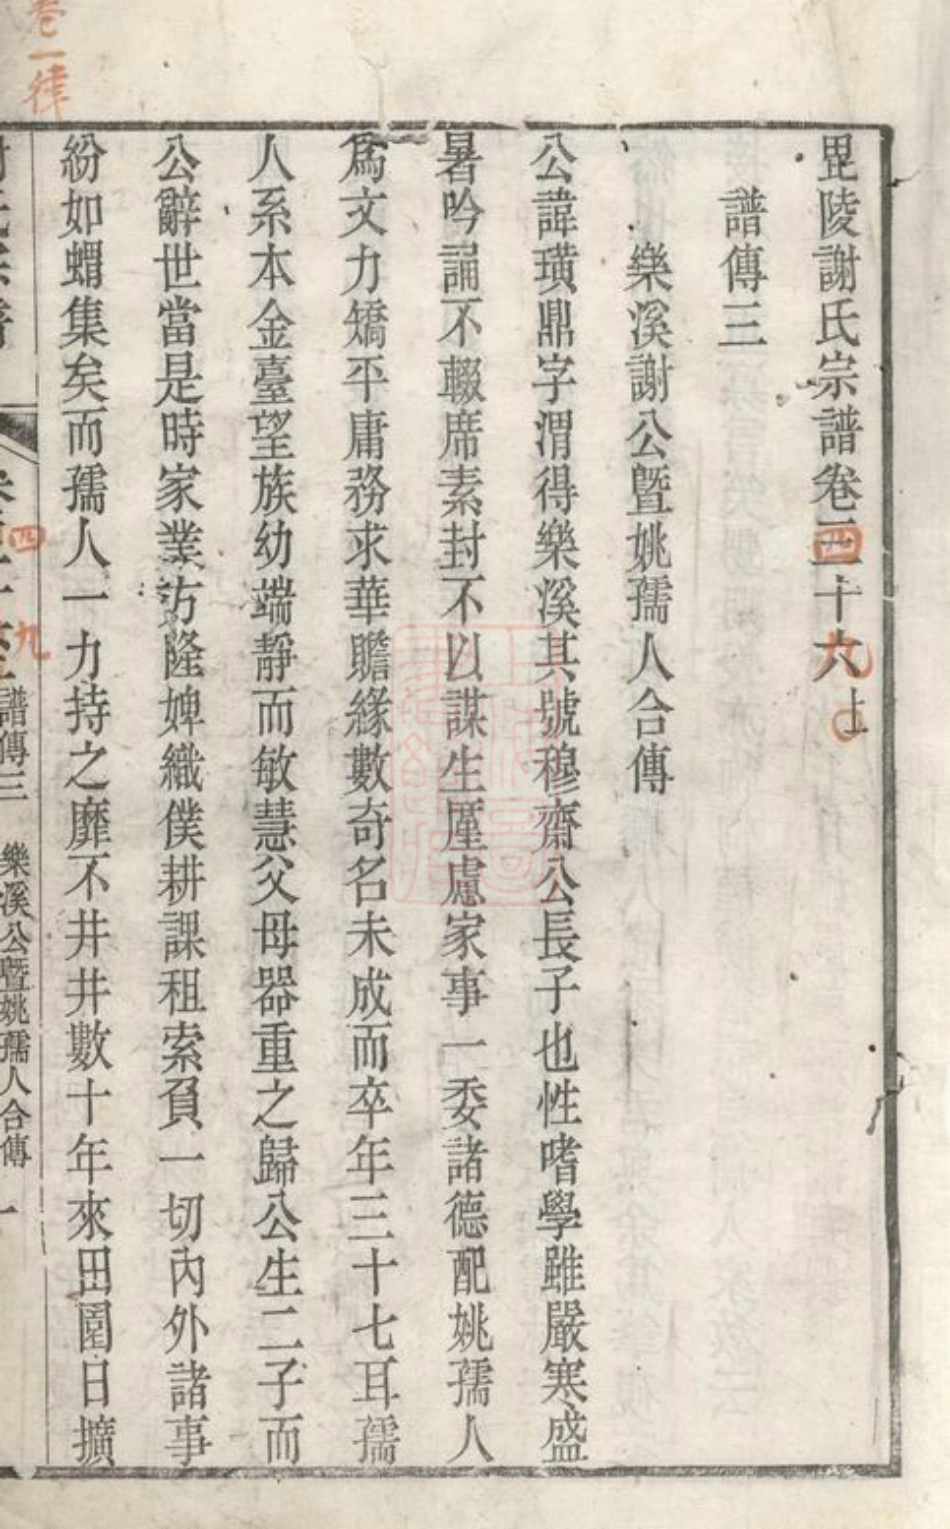 毘陵謝氏宗譜卷三十六上
四
九
譜傳三
樂溪謝公暨姚孺人合傳
公諱璜鼎字渭得樂溪其號穆齋公長子也性嗜學雖嚴寒盛
暑吟誦不輟席素封不以謀生厪慮家事一委諸德配姚孺人
爲文力矯平庸務求華贍緣數奇名未成而卒年三十七耳孺
人系本金臺望族幼端靜而敏慧父母器重之歸公生二子而
公辭世當是時家業方隆婢織僕耕課租索負一切內外諸事
紛如蝟集矣而孺人一力持之靡不井井數十年來田園日擴
譜傳三 樂溪公暨姚孺人合傳 一
四
九
卷一律